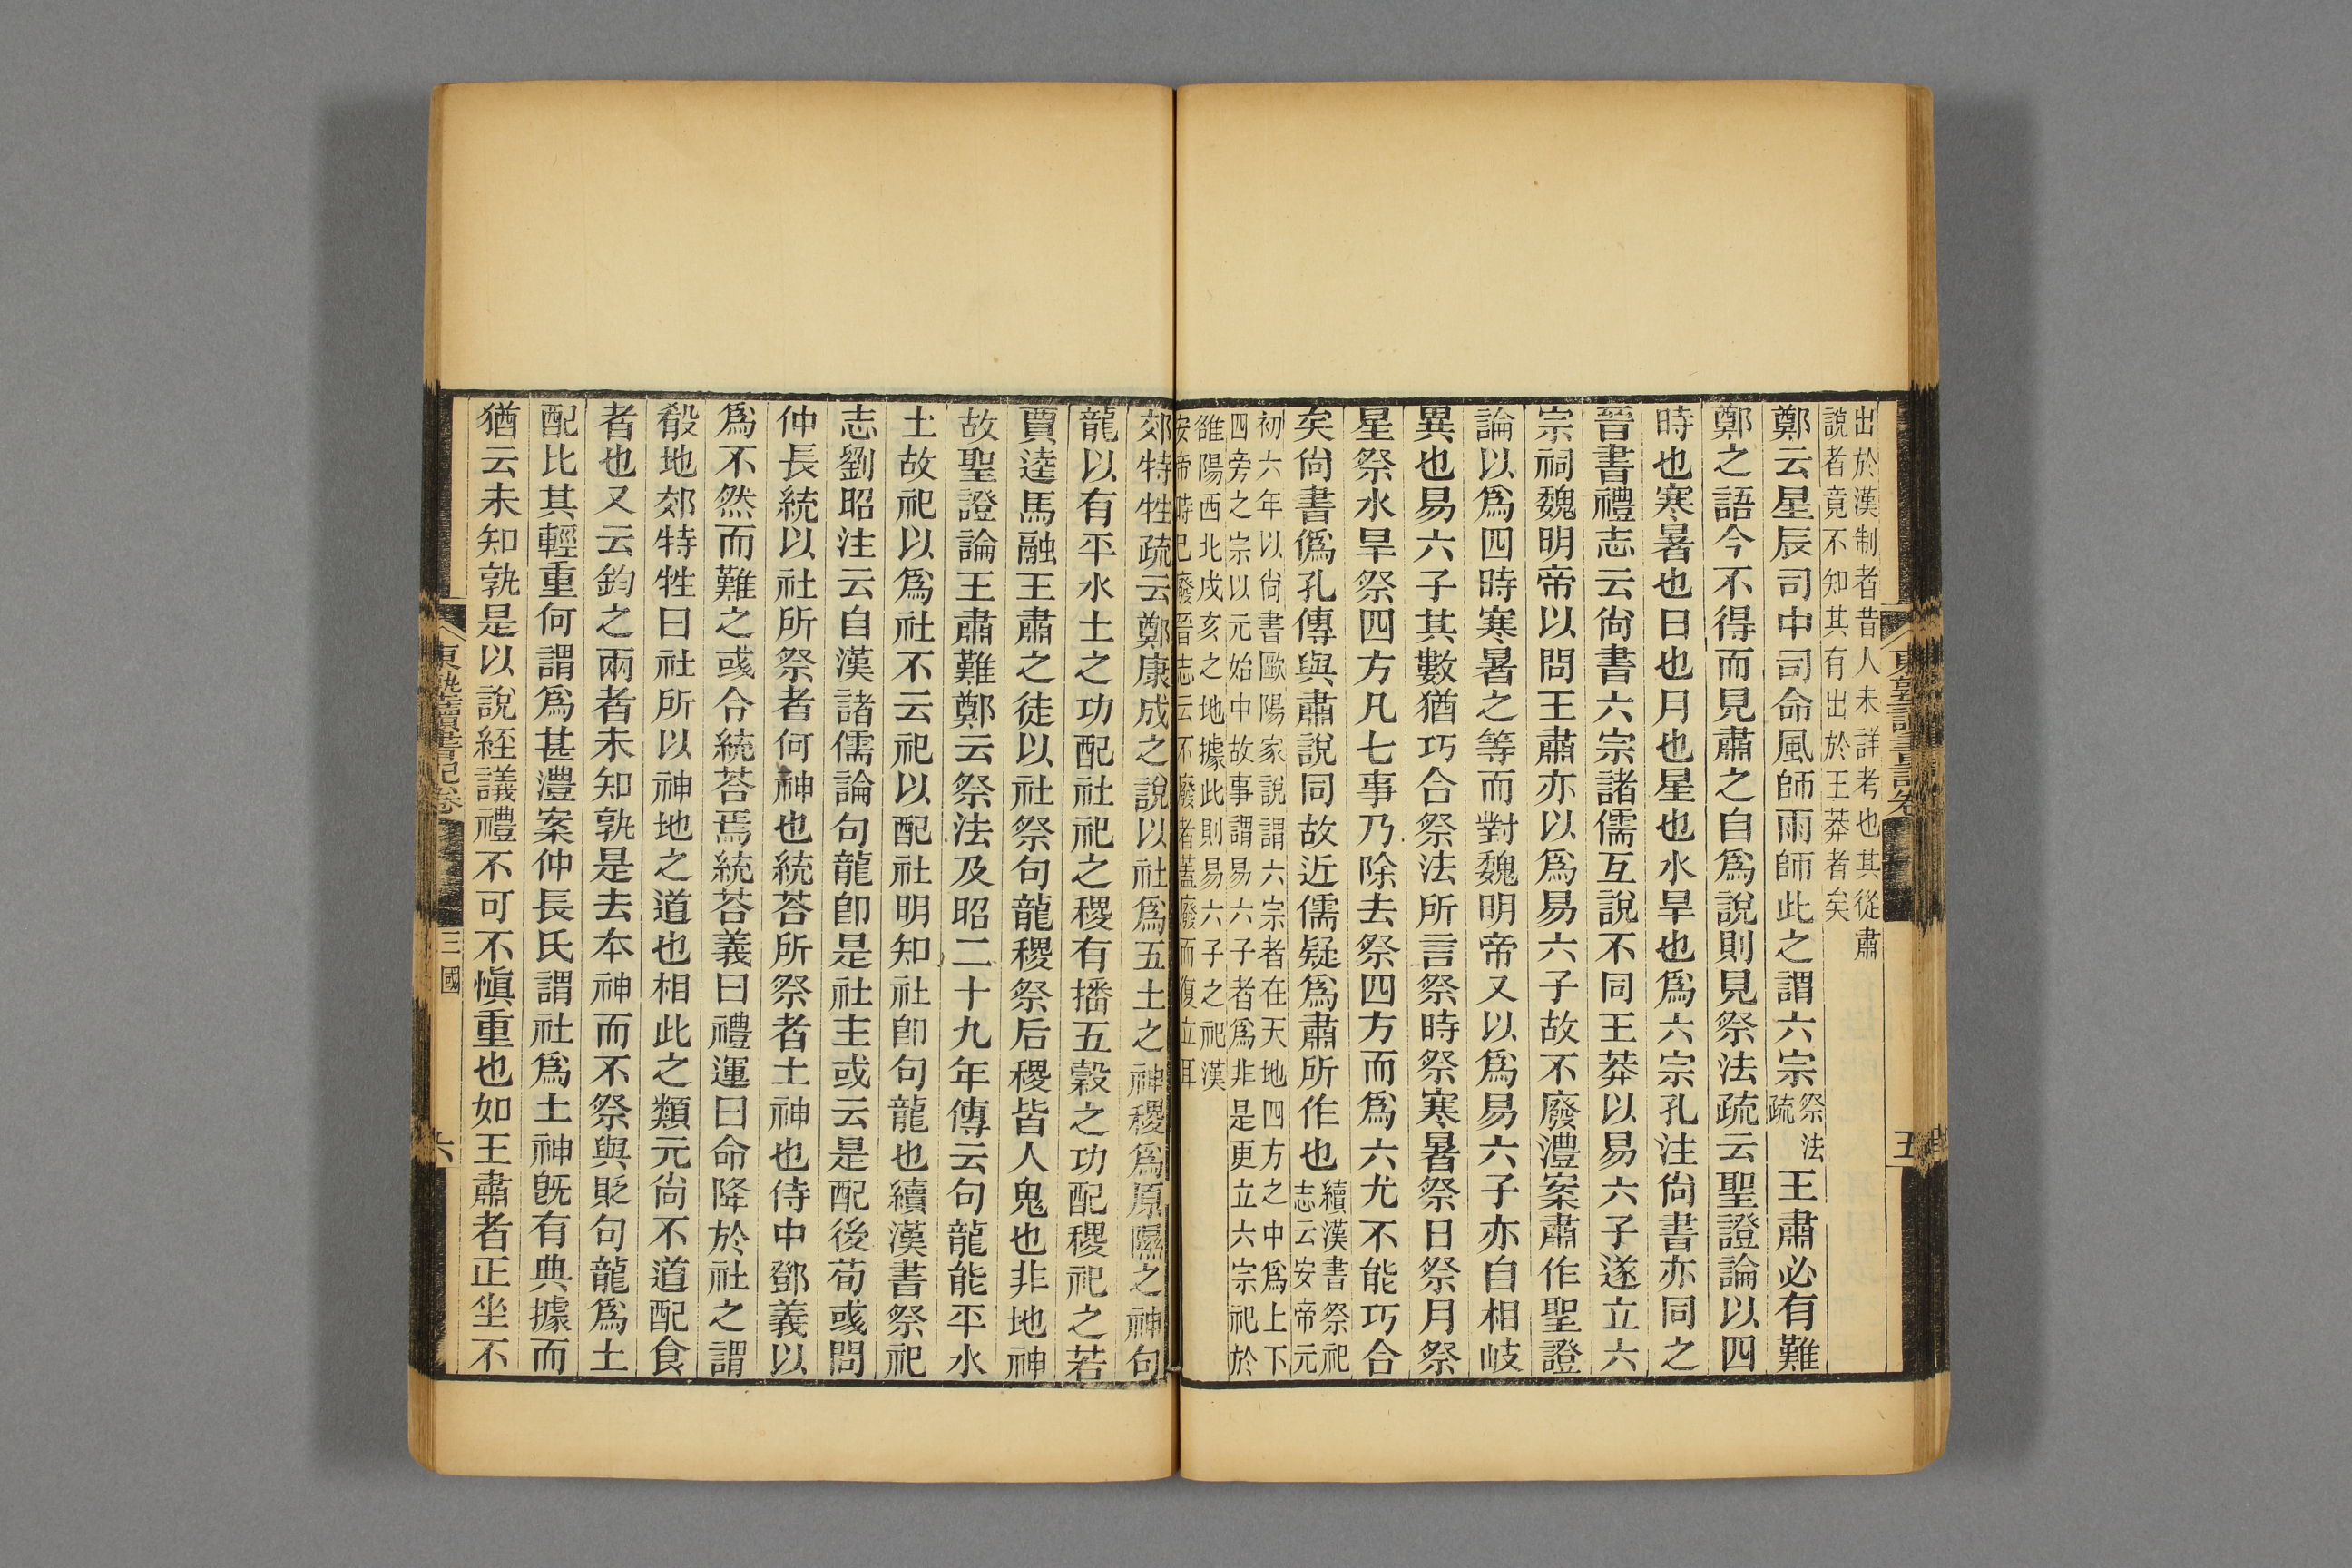 出於漢制者昔人未詳考也其從肅
說者竟不知其有出於王莽者矣
鄭云星辰司中司命風師雨師此之謂六宗祭法疏王肅必有難
鄭之語今不得而見肅之自爲說則見祭法疏云聖證論以四
時也寒暑也日也月也星也水旱也爲六宗孔注尙書亦同之
晉書禮志云尙書六宗諸儒互說不同王莽以易六子遂立六
宗祠魏明帝以問王肅亦以爲易六子故不廢澧案肅作聖證
論以爲四時寒暑之等而對魏明帝又以爲易六子亦自相岐
異也易六子其數猶巧合祭法所言祭時祭寒暑祭日祭月祭
星祭水旱祭四方凡七事乃除去祭四方而爲六尤不能巧合
矣尙書僞孔傳與肅說同故近儒疑爲肅所作也續漢書祭祀志云安帝元
初六年以尙書歐陽家說謂六宗者在天地四方之中爲上下
四旁之宗以元始中故事謂易六子者爲非是更立六宗祀於
雒陽西北戌亥之地據此則易六子之祀漢
安帝時已廢晉志云不廢者蓋廢而復立耳
郊特牲疏云鄭康成之說以社爲五土之神稷爲原隰之神句
龍以有平水土之功配社祀之稷有播五穀之功配稷祀之若
賈逵馬融王肅之徒以社祭句龍稷祭后稷皆人鬼也非地神
故聖證論王肅難鄭云祭法及昭二十九年傳云句龍能平水
土故祀以爲社不云祀以配社明知社卽句龍也續漢書祭祀
志劉昭注云自漢諸儒論句龍卽是社主或云是配後荀彧問
仲長統以社所祭者何神也統荅所祭者土神也侍中鄧義以
爲不然而難之彧令統荅焉統荅義曰禮運曰命降於社之謂
殽地郊特牲曰社所以神地之道也相此之類元尙不道配食
者也又云鈞之兩者未知孰是去本神而不祭與貶句龍爲土
配比其輕重何謂爲甚澧案仲長氏謂社爲土神旣有典據而
猶云未知孰是以說經議禮不可不愼重也如王肅者正坐不
東塾讀書記卷
三國
六
東塾讀書記卷
五